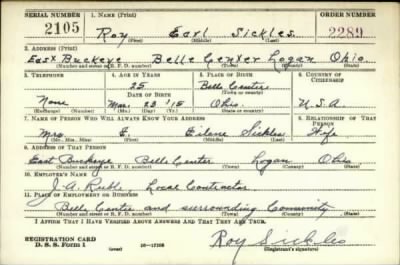 SERIAL NUMBER 1. NAME (Print) ORDER NUMBER
2105 Roy Earl Sickles 2289
(First) (Middle) (Last)
2. ADDRESS (Print)
East Buckeye Belle Center Logan Ohio.
(Number and street or R. F. D. number) (Town) (County) (State)
3. TELEPHONE 4. AGE IN YEARS 5. PLACE OF BIRTH 6. COUNTRY OF CITIZENSHIP
25 Belle Center
DATE OF BIRTH (Town or county)
None Mar. 23 '15 Ohio. U.S.A
(Mo.) (Day) (Yr.) (State or country)
7. NAME OF PERSON WHO WILL ALWAYS KNOW YOUR ADDRESS 8. RELATIONSHIP OF THAT PERSON
Mrs. E. Eilene Sickles. Wife
(Mr., Mrs., Miss) (First) (Middle) (Last)
9. ADDRESS OF THAT PERSON
East Buckeye Belle Center Logan Ohio
(Number and street or R. F. D. number) (Town) (County) (State)
10. EMPLOYER'S NAME
J.A. Local Contractor
11. PLACE OF EMPLOYMENT OR BUSINESS
Belle Center and surrounding Community
(Number and street or R. F. D. number) (Town) (County) (State)
I AFFIRM THAT I HAVE VERIFIED ABOVE ANSWERS AND THAT THEY ARE TRUE.
REGISTRATION CARD
D. S. S. Form 1 (over) 16—17105 Roy Sickles
(Registrant's signature)